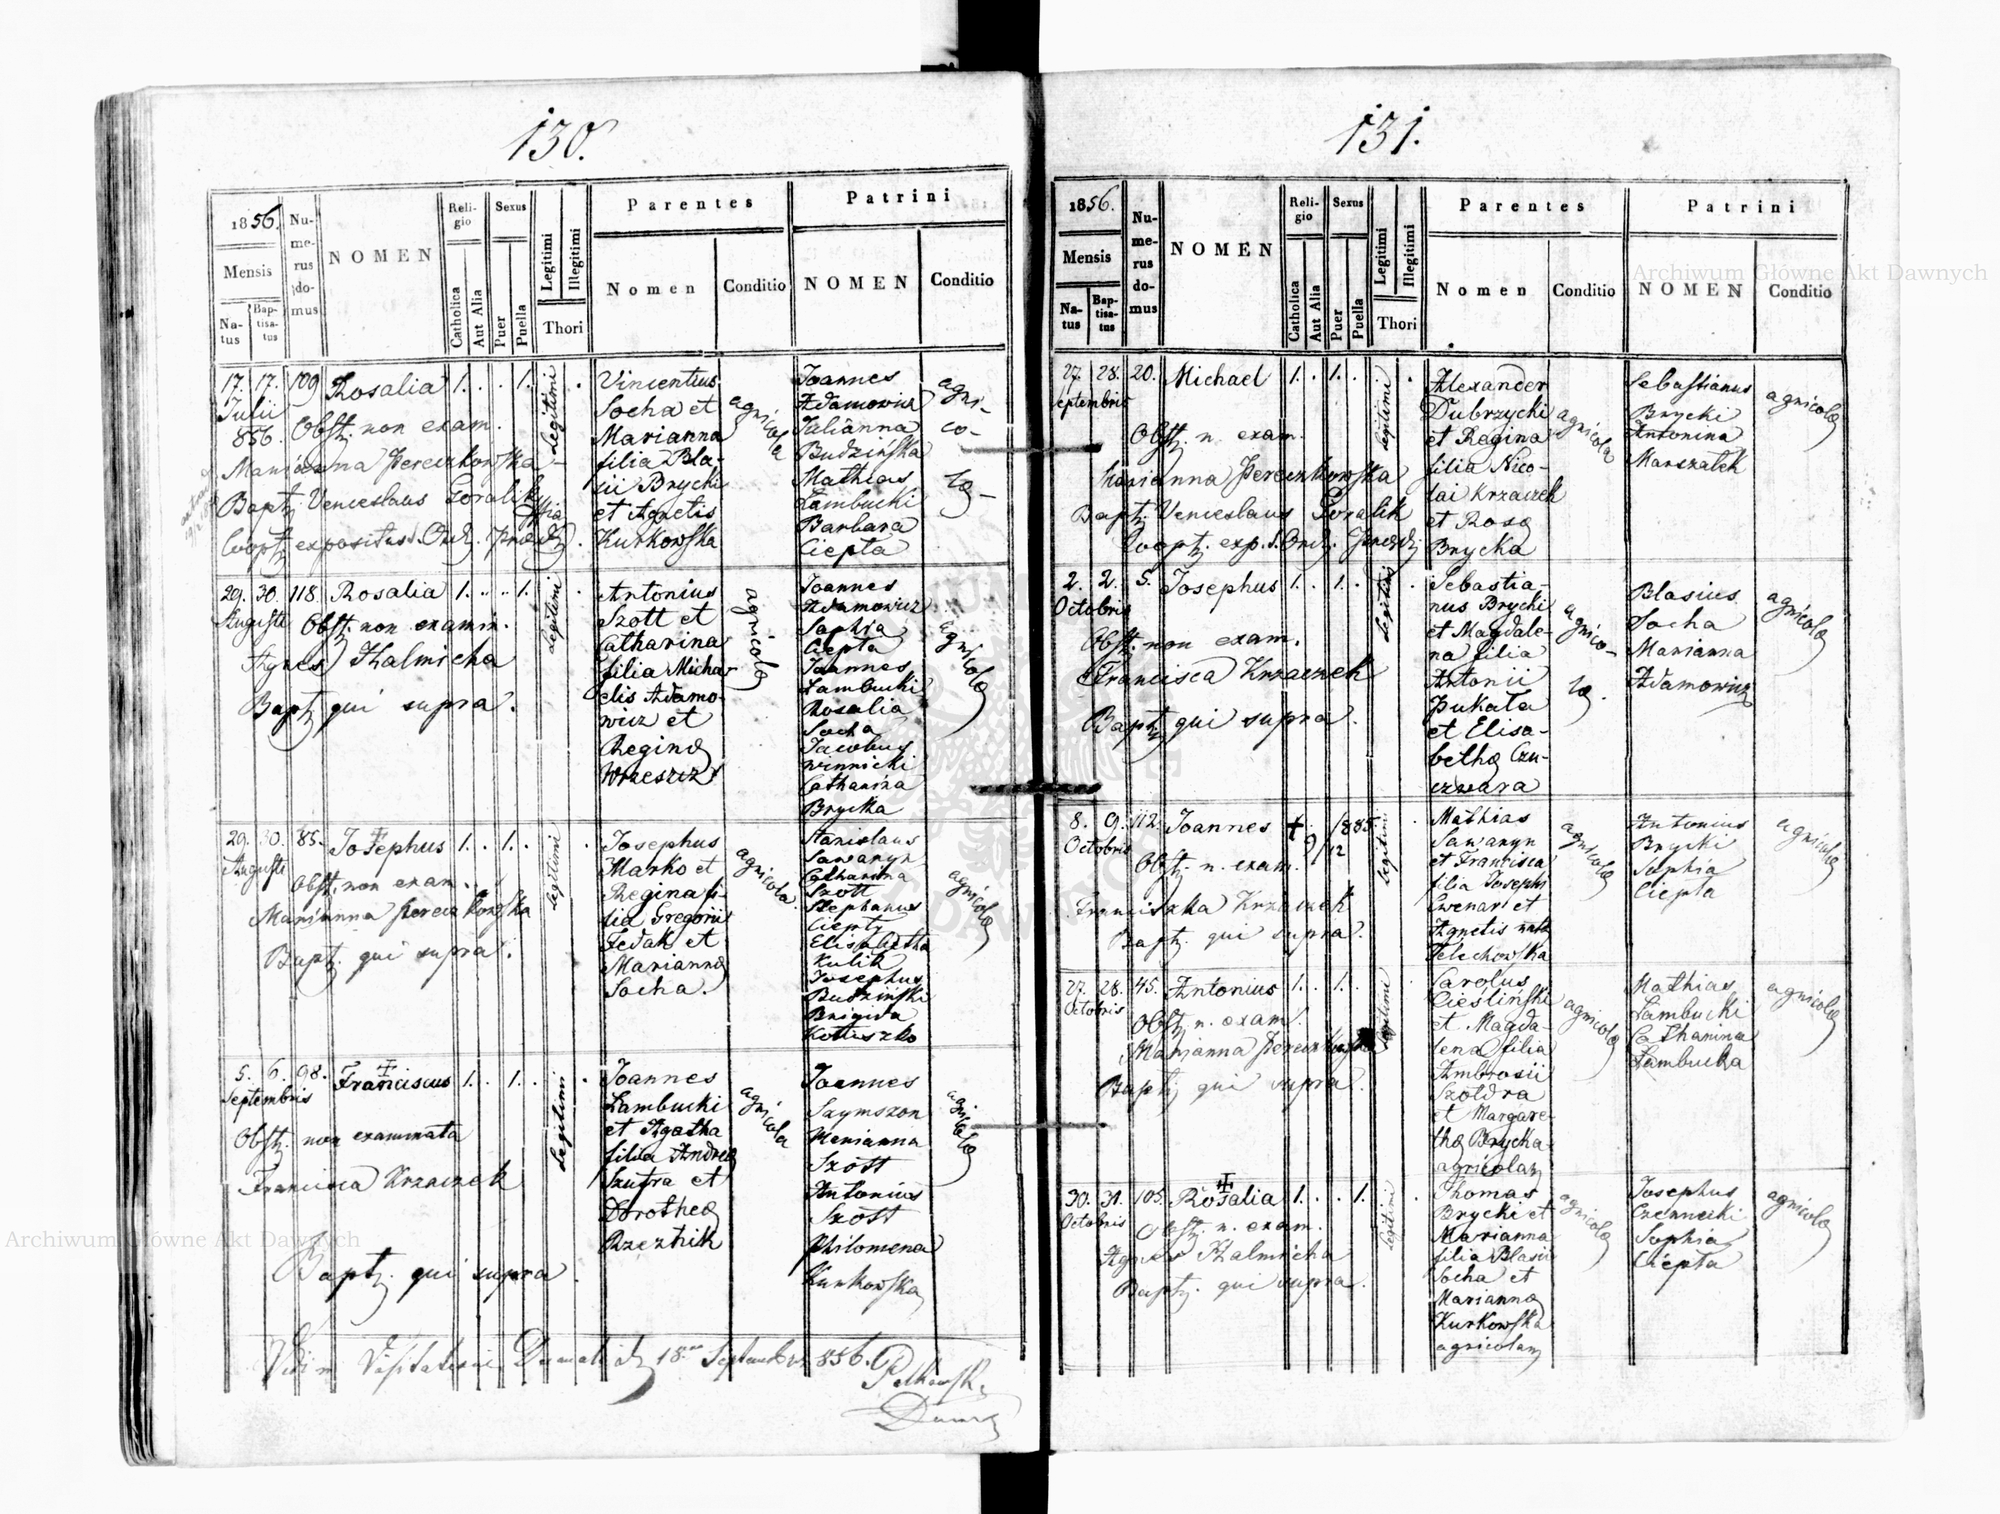 130.
1856.
Mensis
Natus
Baptisatus
Numerus domus
NOMEN
Religio
Catholica
Aut Alia
Sexus
Puer
Puella
Legitimi
Illegitimi
Thori
Parentes
Nomen
Conditio
Patrini
NOMEN
Conditio
17. 17. 109 Rosalia 1. . . 1.
Julii
856.
Obst. non exam.
Marianna Pereczkowska
Bapt. Venceslaus Goralik
Coopt. expositus
Legitimi
Vincentius
Socha et
Marianna
filia Bla-
sii Brycki
et Agnetis
Kurkowska
agricola
Joannes
Adamowicz
Julianna
Budzińska
Mathias
Łambucki
Barbara
Ciepta
agri-
co-
læ
29. 30. 118. Rosalia 1. . . 1.
Auguste
Obst. non examin.
Agnes Halmicha
Bapt. qui supra.
Legitimi
Antonius
Szott et
Catharina
filia Micha-
elis Adamo-
wicz et
Reginæ
Wrzeszcz
agricolæ
Joannes
Adamowicz
Sophia
Ciepta
Joannes
Łambucki
Rosalia
Socha
Jacobus
Winnicki
Catharina
Brycka
agricolæ
29. 30. 85. Josephus 1. . 1. .
Auguste
Obst. non exam.
Marianna Pereczkowska
Bapt. qui supra.
Legitimi
Josephus
Marko et
Regina fi-
lia Gregorii
Fedak et
Mariannæ
Socha.
agricola.
Stanislaus
Sawaryn
Catharina
Szott
Stephanus
Ciepty
Elisabetha
Kulik
Josephus
Budziński
Brigida
Kotiuszko
agricolæ
5. 6. 98. Franciscus 1. . 1. .
Septembris
Obst. non examinata
Francisca Krzaczek
Bapt. qui supra
Legitimi
Joannes
Łambucki
et Agatha
filia Andreæ
Szutra et
Dorotheæ
Rzeźnik
agricola
Joannes
Szymszon
Marianna
Szott
Antonius
Szott
Philomena
Kurkowska
agricolæ
Vidi in Visitatione Decanali d. 18. Septembris 856.
131.
1856.
Mensis
Natus
Baptisatus
Numerus domus
NOMEN
Religio
Catholica
Aut Alia
Sexus
Puer
Puella
Legitimi
Illegitimi
Thori
Parentes
Nomen
Conditio
Patrini
NOMEN
Conditio
27. 28. 20. Michael 1. . 1. .
Septembris
Obst. n. exam.
Marianna Pereczkowska
Bapt. Venceslaus Goralik
Coopt. exp.
Legitimi
Alexander
Dubrzycki
et Regina
filia Nico-
lai Krzaczek
et Rosæ
Brycka
agricolæ
Sebastianus
Brycki
Antonina
Marszałek
agricolæ
2. 2. 5. Josephus 1. . 1. .
Octobris
Obst. non exam.
Francisca Krzaczek
Bapt. qui supra.
Legitimi
Sebastia-
nus Brycki
et Magdale-
na filia
Antonii
Pukata
et Elisa-
bethæ Czu-
czwara
agrico-
læ.
Blasius
Socha
Marianna
Adamowicz
agricolæ
8. 9. 112. Joannes † 9/12 1885.
Octobris
Obst. n. exam.
Franciszka Krzaczek
Bapt. qui supra.
Legitimi
Mathias
Sawaryn
et Francisca
filia Josephi
Cwenar et
Agnetis
Telichowska
agricolæ
Antonius
Brycki
Sophia
Ciepta
agricolæ
27. 28. 45. Antonius 1. . 1. .
Octobris
Obst. n. exam.
Marianna Pereczkowska
Bapt. qui supra.
Legitimi
Carolus
Cieśliński
et Magda-
lena filia
Ambrosii
Szołdra
et Margare-
thæ Brycka
agricolar.
agricolæ
Mathias
Łambucki
Catharina
Łambucka
agricolæ
30. 31. 105. Rosalia 1. . . 1.
Octobris
Obst. n. exam.
Agnes Halmicha
Bapt. qui supra.
Legitimi
Thomas
Brycki et
Marianna
filia Blasii
Socha et
Mariannæ
Kurkowska
agricolar.
agricolæ
Josephus
Czernecki
Sophia
Ciepta
agricolæ
Archiwum Główne Akt Dawnych
Archiwum Główne Akt Dawnych